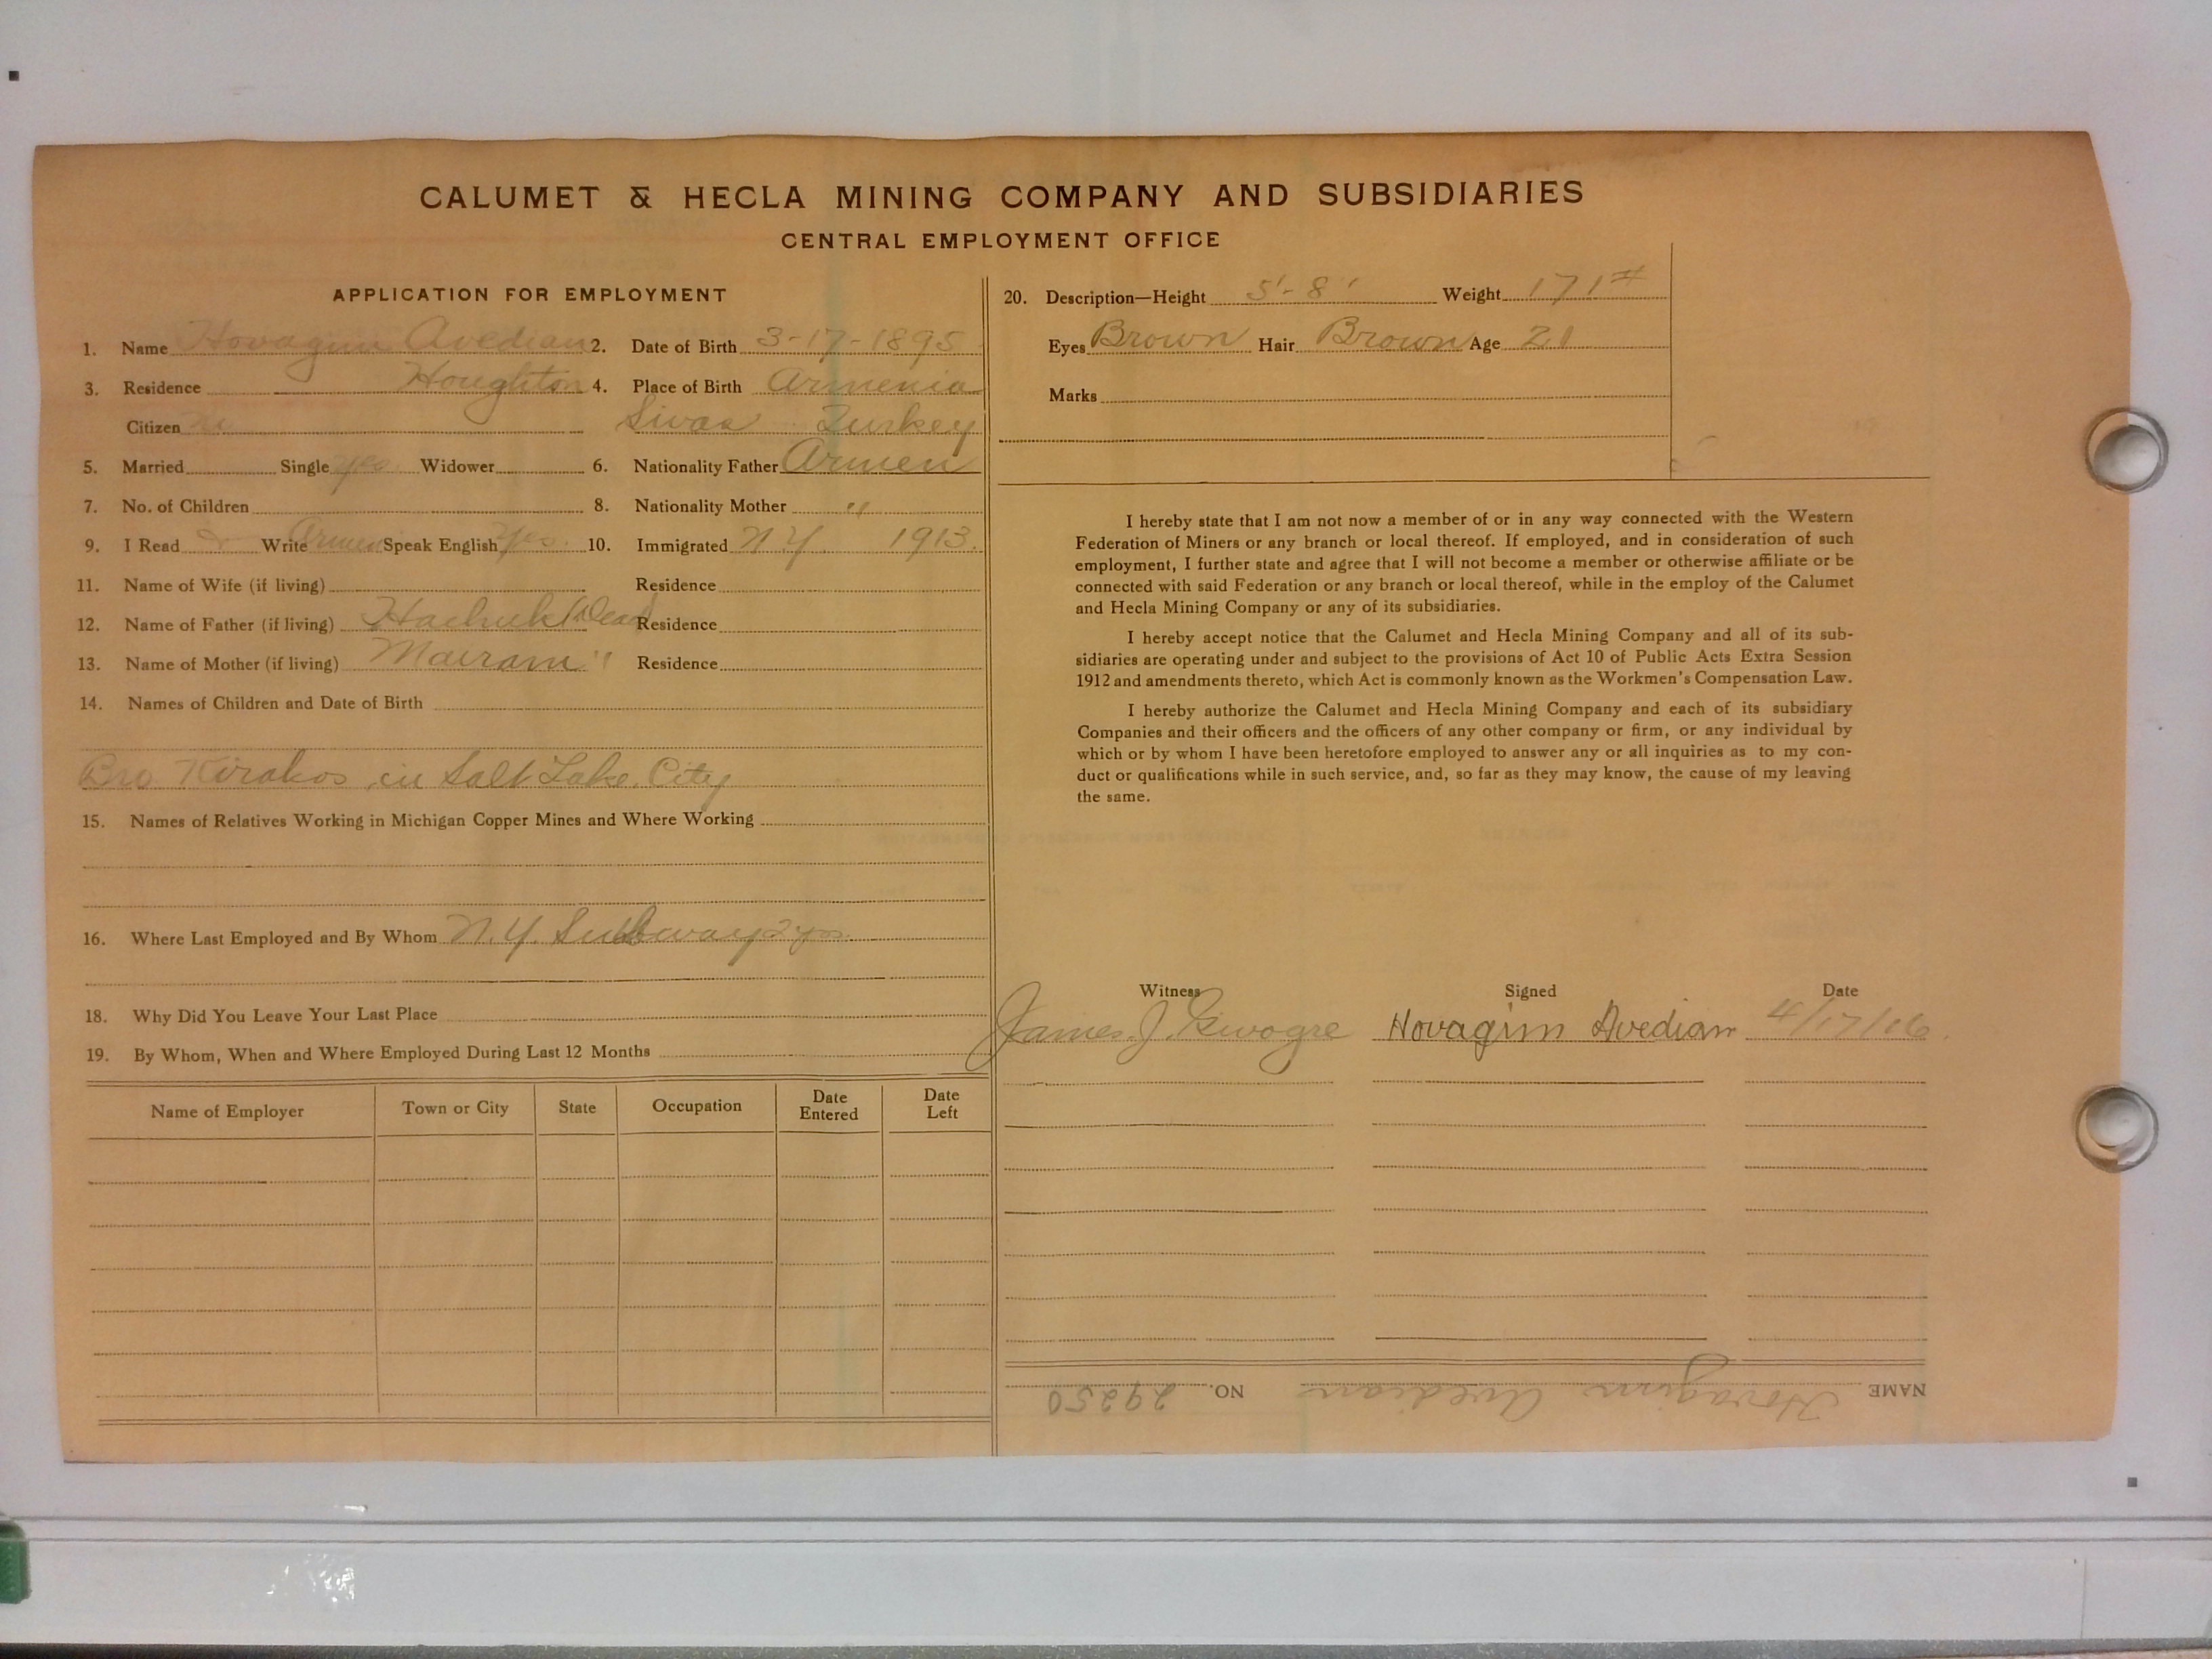 CALUMET & HECLA MINING COMPANY AND SUBSIDIARIES
CENTRAL EMPLOYMENT OFFICE
APPLICATION FOR EMPLOYMENT
1. Name Hovagim Avedian 2. Date of Birth 3-17-1895
3. Residence Houghton 4. Place of Birth Armenia
Citizen Sivas Turkey
5. Married Single yes Widower 6. Nationality Father Armen
7. No. of Children 8. Nationality Mother "
9. I Read & Write Armen Speak English Yes. 10. Immigrated N.Y. 1913.
11. Name of Wife (if living) Residence
12. Name of Father (if living) Residence
13. Name of Mother (if living) Mairam " Residence
14. Names of Children and Date of Birth
Bro Kirakos in Salt Lake City
15. Names of Relatives Working in Michigan Copper Mines and Where Working
16. Where Last Employed and By Whom N.Y. Subway 2 yrs.
18. Why Did You Leave Your Last Place
19. By Whom, When and Where Employed During Last 12 Months
Name of Employer Town or City State Occupation Date Entered Date Left
20. Description—Height 5'-8" Weight 171#
Eyes Brown Hair Brown Age 21
Marks
I hereby state that I am not now a member of or in any way connected with the Western
Federation of Miners or any branch or local thereof. If employed, and in consideration of such
employment, I further state and agree that I will not become a member or otherwise affiliate or be
connected with said Federation or any branch or local thereof, while in the employ of the Calumet
and Hecla Mining Company or any of its subsidiaries.
I hereby accept notice that the Calumet and Hecla Mining Company and all of its sub-
sidiaries are operating under and subject to the provisions of Act 10 of Public Acts Extra Session
1912 and amendments thereto, which Act is commonly known as the Workmen's Compensation Law.
I hereby authorize the Calumet and Hecla Mining Company and each of its subsidiary
Companies and their officers and the officers of any other company or firm, or any individual by
which or by whom I have been heretofore employed to answer any or all inquiries as to my con-
duct or qualifications while in such service, and, so far as they may know, the cause of my leaving
the same.
Witness Signed Date
James J. Hovagim Avedian 4/17/16
NAME Hovagim Avedian NO. 29250